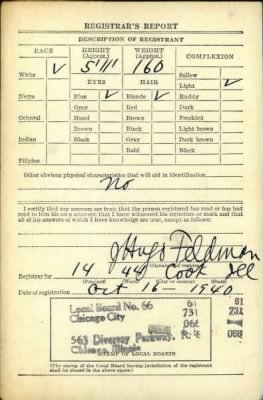 REGISTRAR'S REPORT
DESCRIPTION OF REGISTRANT
RACE HEIGHT (Approx.) WEIGHT (Approx.) COMPLEXION
White ✓ 5'11" 160 Sallow
EYES HAIR Light ✓
Negro Blue ✓ Blonde ✓ Ruddy
Gray Red Dark
Oriental Hazel Brown Freckled
Brown Black Light brown
Indian Black Gray Dark brown
Bald Black
Filipino
Other obvious physical characteristics that will aid in identification
No
I certify that my answers are true; that the person registered has read or has had
read to him his own answers; that I have witnessed his signature or mark and that
all of his answers of which I have knowledge are true, except as follows:
J Hugo Feldman
Registrar for 14 44 Cook Ill
(Precinct) (Ward) (City or county) (State)
Date of registration Oct 16 - 1940
Local Board No. 66 61 61
Chicago City 731 731
066
563 Diversey Parkway, R. 4 068
Chicago, Illinois
STAMP OF LOCAL BOARD
(The stamp of the Local Board having jurisdiction of the registrant
shall be placed in the above space.)